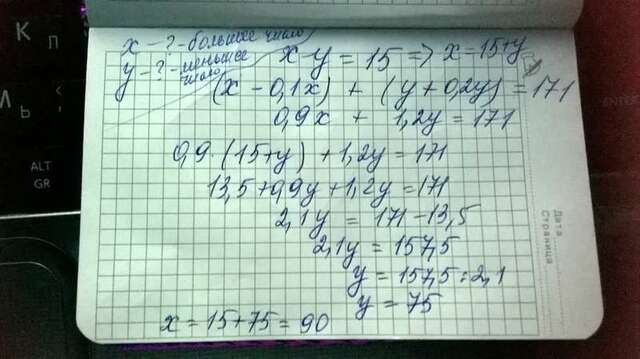 x - ? - большее число
y - ? - меньшее число
x - y = 15 => x = 15 + y
(x - 0,1x) + (y + 0,2y) = 171
0,9x + 1,2y = 171
0,9 · (15+y) + 1,2y = 171
13,5 + 0,9y + 1,2y = 171
2,1y = 171 - 13,5
2,1y = 157,5
y = 157,5 : 2,1
y = 75
x = 15 + 75 = 90
Дата
Страница
ALT
GR
К
Ь